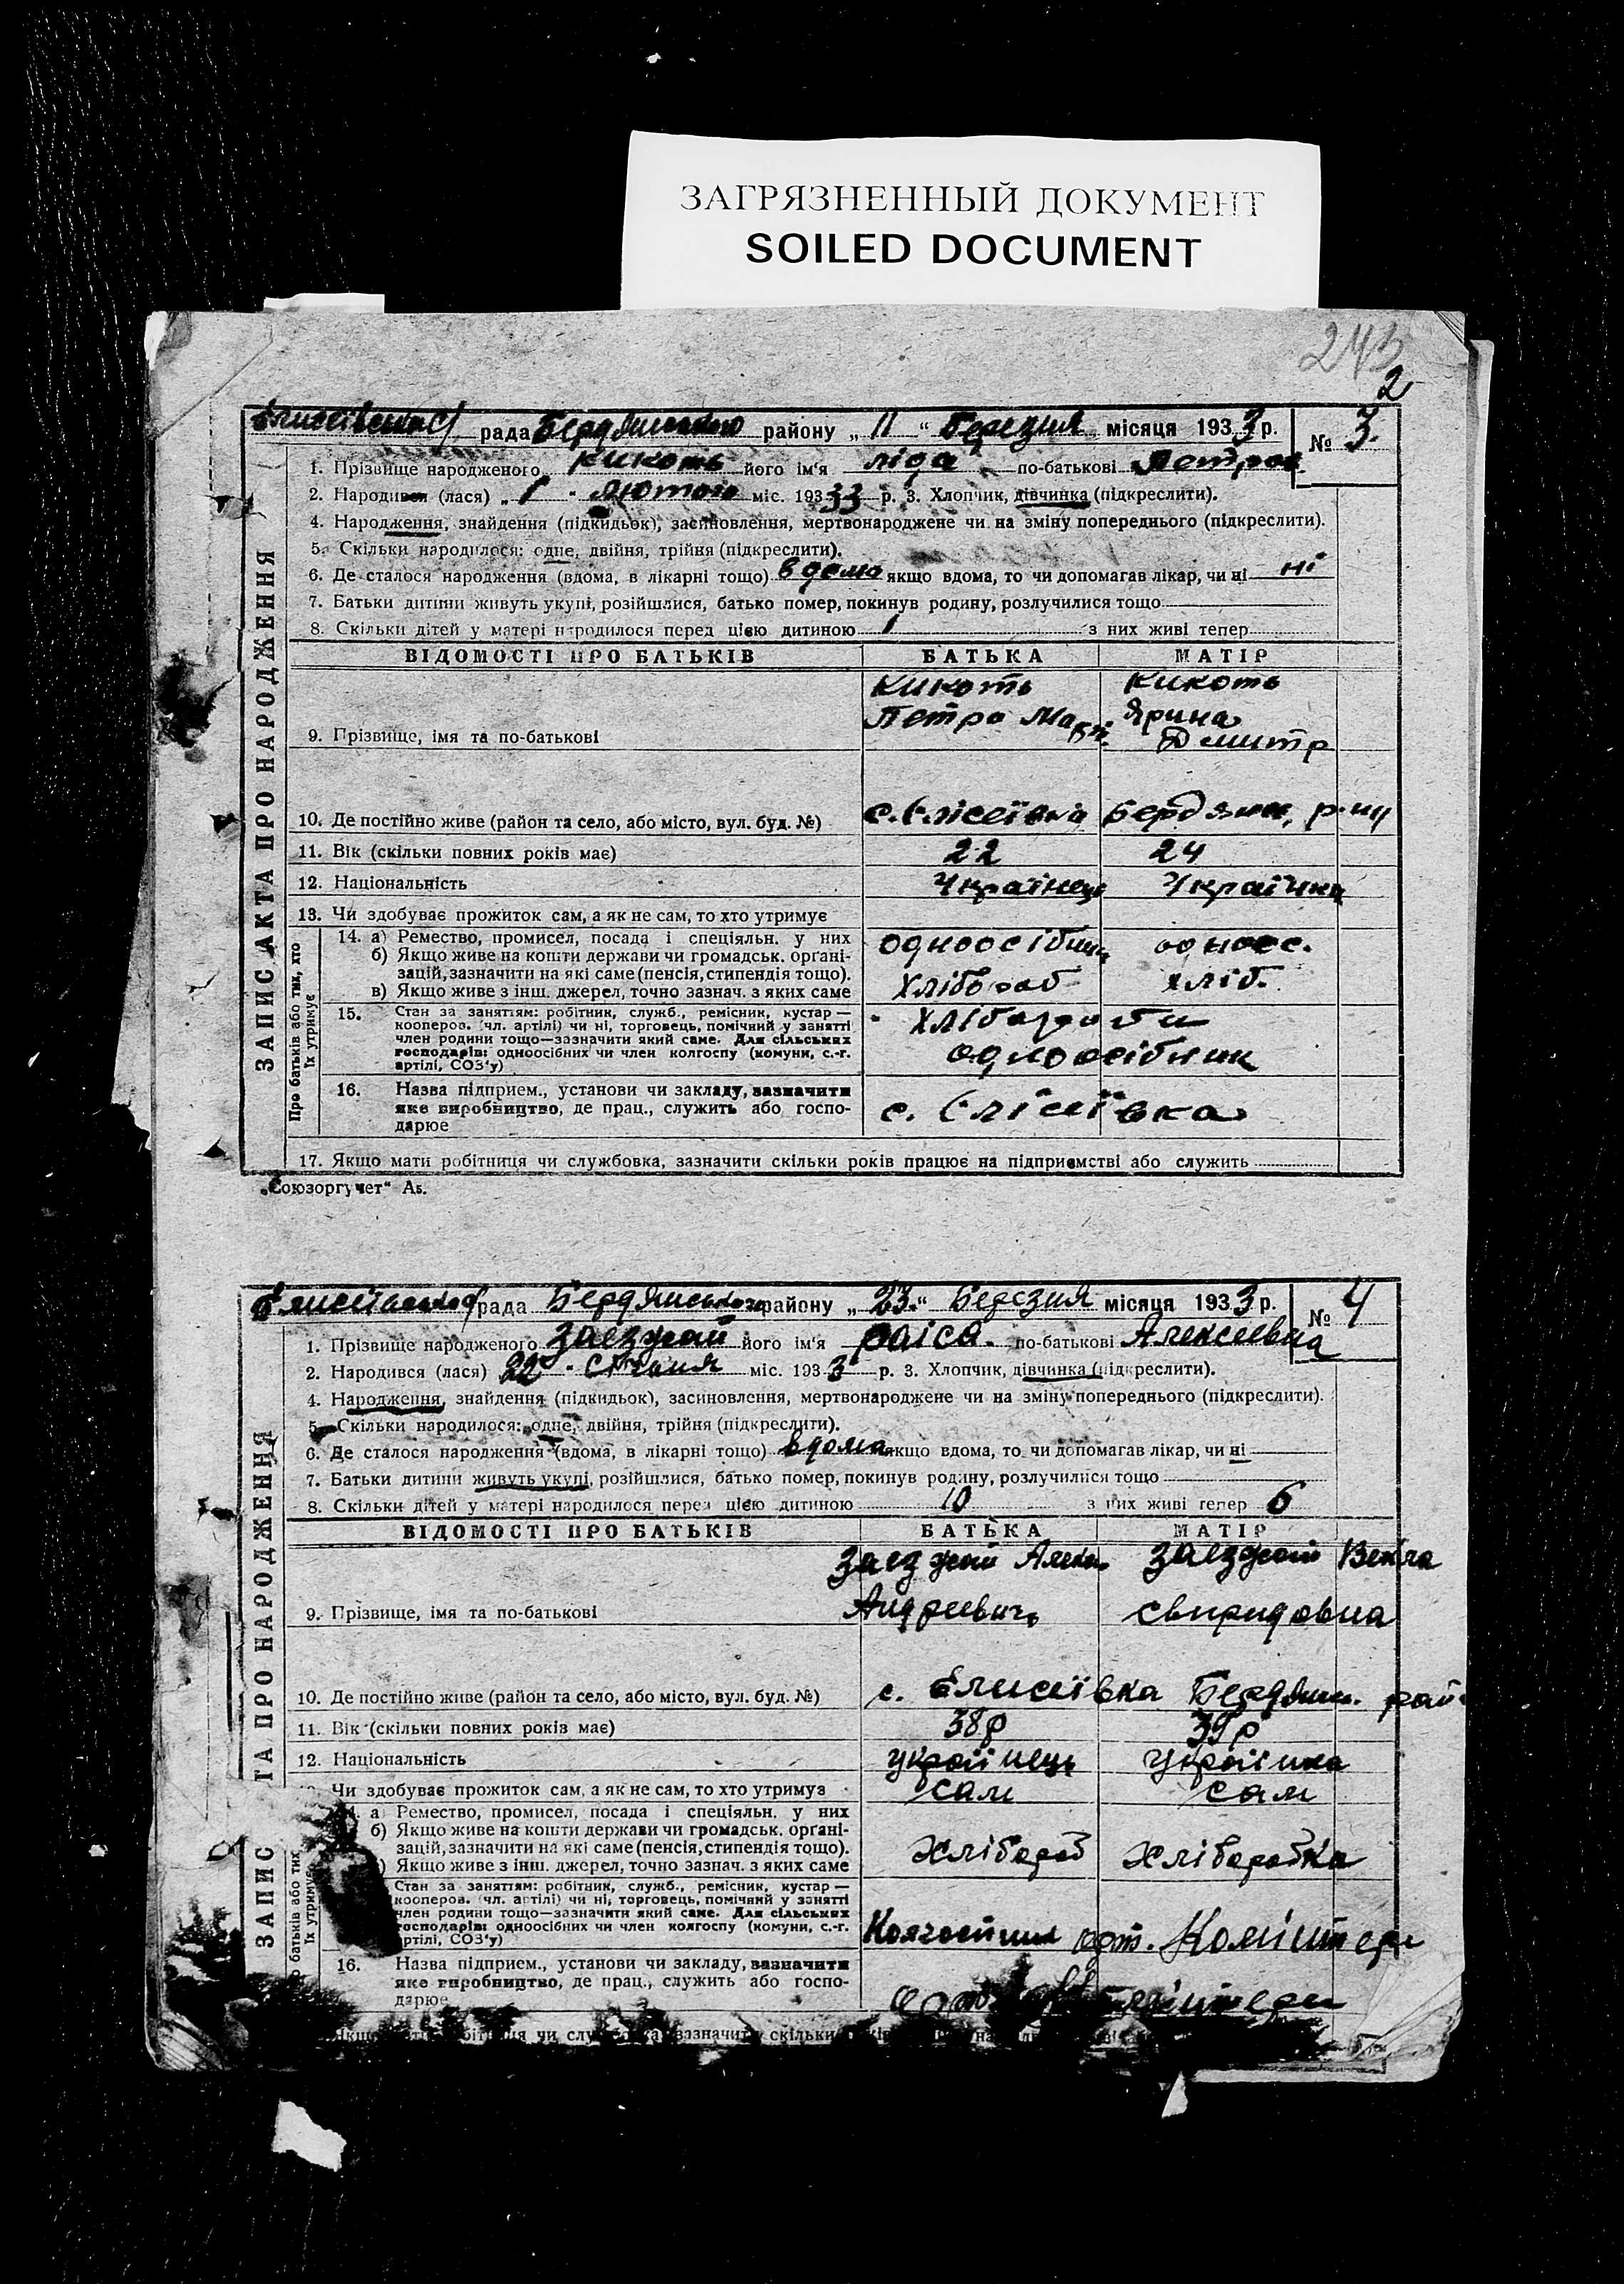 ЗАГРЯЗНЕННЫЙ ДОКУМЕНТ
SOILED DOCUMENT
243
2
рада Бердянського району „ 11 “ Березня місяця 1933 р. № 3.
1. Прізвище народженого Кикоть його ім'я Ліда по-батькові Петров
2. Народився (лася) „ 1 “ Лютого міс. 193 33 р. 3. Хлопчик, дівчинка (підкреслити).
4. Народження, знайдення (підкидьок), засиновлення, мертвонароджене чи на зміну попереднього (підкреслити).
5. Скільки народилося: одне, двійня, трійня (підкреслити).
6. Де сталося народження (вдома, в лікарні тощо) вдома якщо вдома, то чи допомагав лікар, чи ні ні
7. Батьки дитини живуть укупі, розійшлися, батько помер, покинув родину, розлучилися тощо
8. Скільки дітей у матері народилося перед цією дитиною 1 з них живі тепер
ЗАПИС АКТА ПРО НАРОДЖЕННЯ
ВІДОМОСТІ ПРО БАТЬКІВ БАТЬКА МАТІР
Кикоть Кикоть
Петро Ярина
9. Прізвище, імя та по-батькові Дмитр
10. Де постійно живе (район та село, або місто, вул. буд. №) с. Єлісеївка Бердянск. р-ну
11. Вік (скільки повних років має) 22 24
12. Національність Українець Українка
13. Чи здобуває прожиток сам, а як не сам, то хто утримує
Про батьків або тих, хто їх утримує
14. а) Ремество, промисел, посада і спеціяльн. у них одноосібник одноос.
б) Якщо живе на кошти держави чи громадськ. органі-
зацій, зазначити на які саме (пенсія, стипендія тощо). Хлібороб хліб.
в) Якщо живе з інш. джерел, точно зазнач. з яких саме
15. Стан за заняттям: робітник, служб., ремісник, кустар —
кооперов. (чл. артілі) чи ні, торговець, помічний у занятті
член родини тощо—зазначити який саме. Для сільських
господарів: одноосібних чи член колгоспу (комуни, с.-г. одноосібник
артілі, СОЗ'у)
16. Назва підприєм., установи чи закладу, зазначити
яке виробництво, де прац., служить або госпо- с. Єлісеївка
дарює
17. Якщо мати робітниця чи службовка, зазначити скільки років працює на підприємстві або служить
„Союзоргучет“ А5.
рада Бердянського району „ 23. “ Березня місяця 1933 р. № 4
1. Прізвище народженого Заезжай його ім'я Раіса. по-батькові Алексеевна
2. Народився (лася) 22 “ Січня міс. 1933 р. 3. Хлопчик, дівчинка (підкреслити).
4. Народження, знайдення (підкидьок), засиновлення, мертвонароджене чи на зміну попереднього (підкреслити).
5. Скільки народилося: одне, двійня, трійня (підкреслити).
6. Де сталося народження (вдома, в лікарні тощо) вдома якщо вдома, то чи допомагав лікар, чи ні
7. Батьки дитини живуть укупі, розійшлися, батько помер, покинув родину, розлучилися тощо
8. Скільки дітей у матері народилося перед цією дитиною 10 з них живі тепер 6
ЗАПИС ТА ПРО НАРОДЖЕННЯ
ВІДОМОСТІ ПРО БАТЬКІВ БАТЬКА МАТІР
Заезжай Алекс Заезжай Векла
9. Прізвище, імя та по-батькові Андреевичь Свиридовна
10. Де постійно живе (район та село, або місто, вул. буд. №) с. Єлисеївка Бердянск. рай
11. Вік (скільки повних років має) 38 р 39 р
12. Національність Українець Українка
Чи здобуває прожиток сам, а як не сам, то хто утримує сам сам
батьків або тих їх утримує
а) Ремество, промисел, посада і спеціяльн. у них
б) Якщо живе на кошти держави чи громадськ. органі-
зацій, зазначити на які саме (пенсія, стипендія тощо). Хлібороб Хліборобка
Якщо живе з інш. джерел, точно зазнач. з яких саме
Стан за заняттям: робітник, служб., ремісник, кустар —
кооперов. (чл. артілі) чи ні, торговець, помічний у занятті
член родини тощо—зазначити який саме. Для сільських
господарів: одноосібних чи член колгоспу (комуни, с.-г.
артілі, СОЗ'у) Колгоспник арт. Комінтерн
16. Назва підприєм., установи чи закладу, зазначити
яке виробництво, де прац., служить або госпо-
дарює
чи зазначити скільки